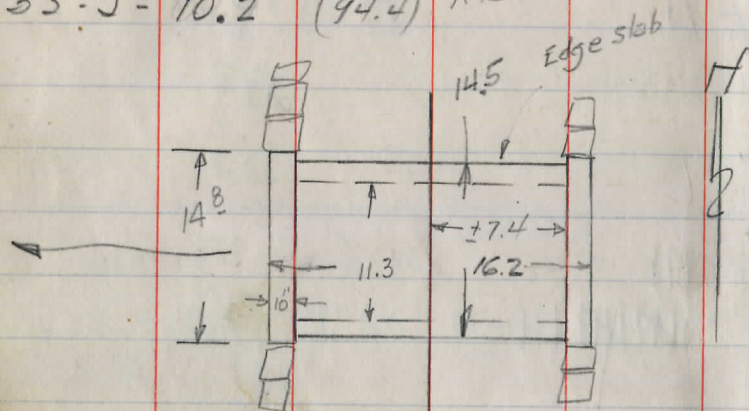 10.2 (94.4)
Edge slab
14.5
14 8
±7.4
11.3 16.2
10"